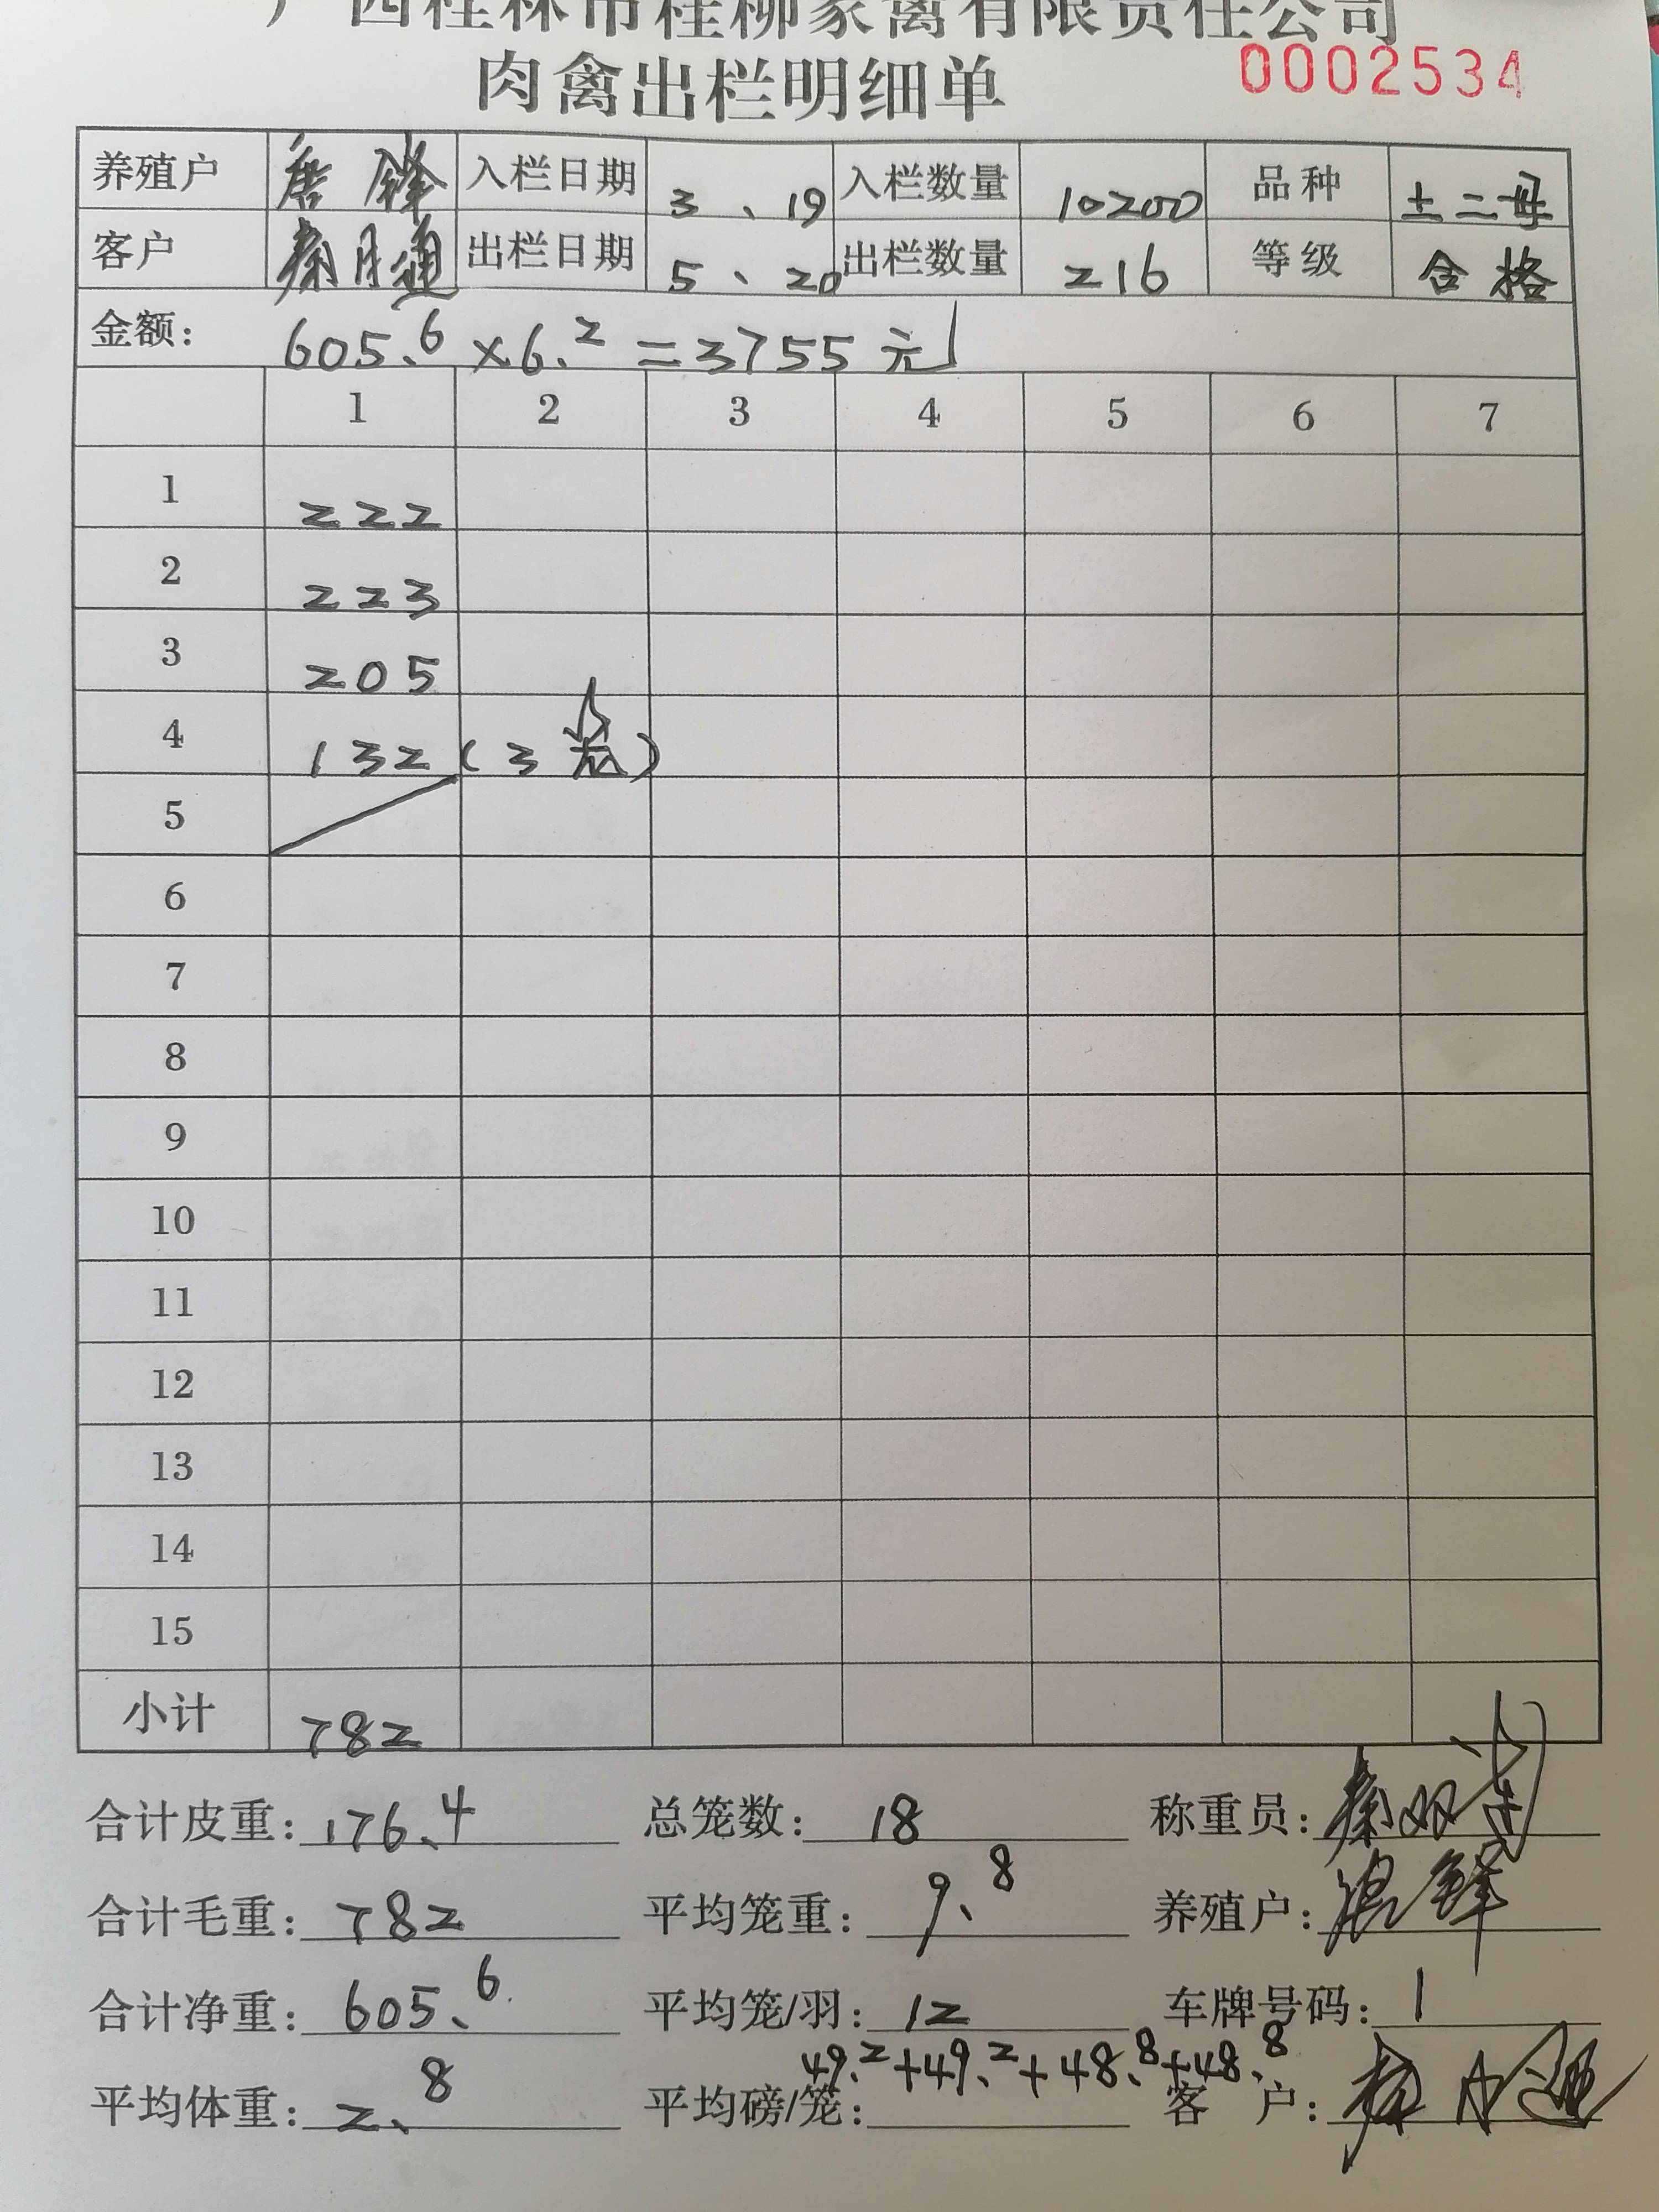 广西桂林市桂柳家禽有限责任公司
肉禽出栏明细单 0002534
养殖户 唐锋 入栏日期 3、19 入栏数量 10200 品种 土二母
客户 秦月通 出栏日期 5、20 出栏数量 216 等级 合格
金额: 605.6×6.2=3755元
1 2 3 4 5 6 7
1 222
2 223
3 205
4 132(3笼)
5
6
7
8
9
10
11
12
13
14
15
小计 782
合计皮重: 176.4 总笼数: 18 称重员:
合计毛重: 782 平均笼重: 9.8 养殖户:
合计净重: 605.6 平均笼/羽: 12 车牌号码: 1
49.2+49.2+48.8+48.8
平均体重: 2.8 平均磅/笼: 客户: